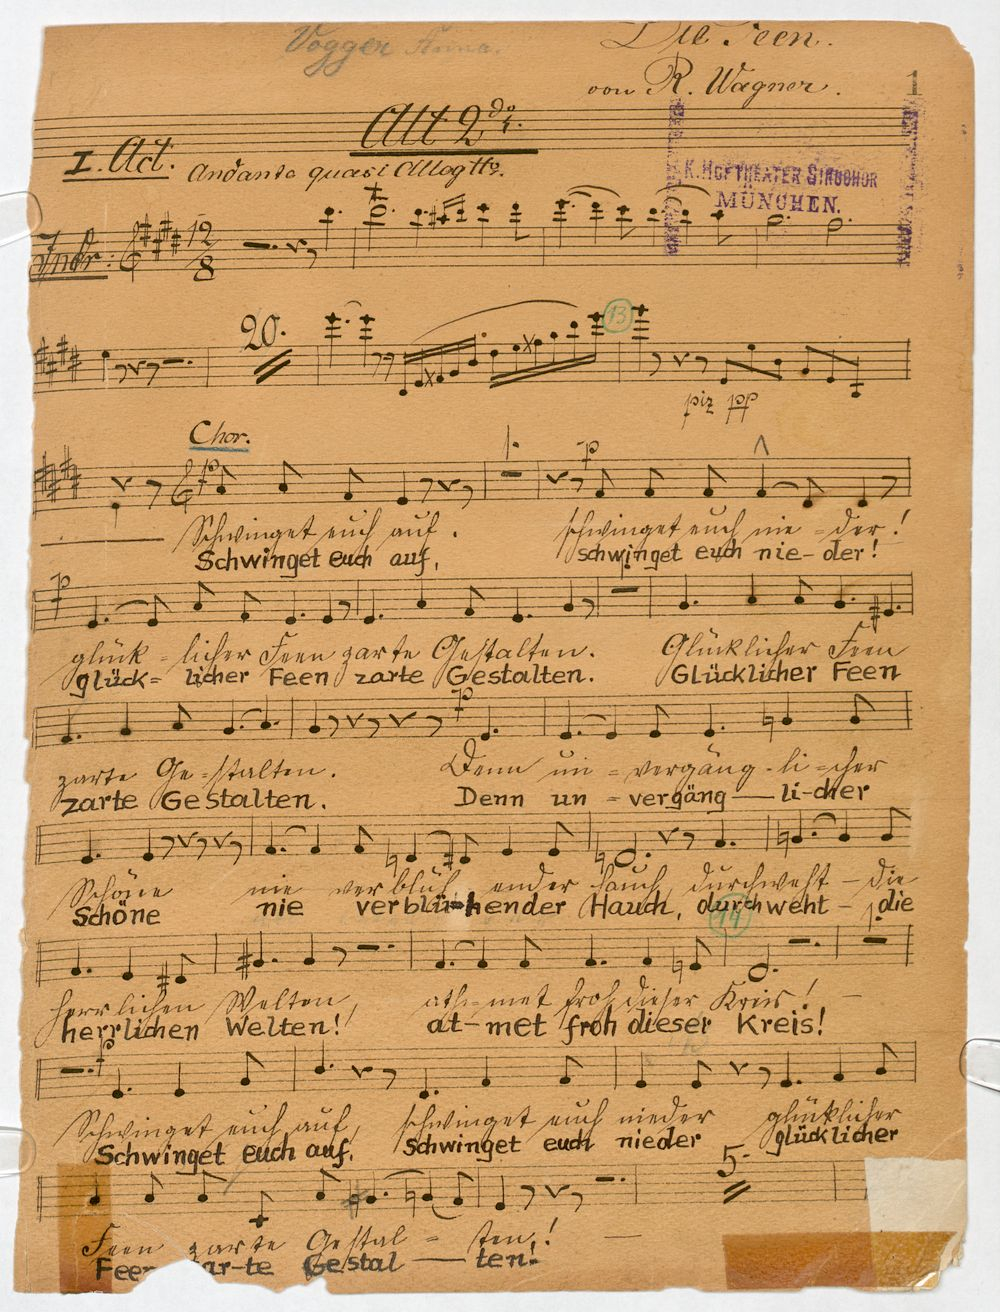 Vogger Anna.
Die Feen.
von R. Wagner.
1
Alt 2do.
I. Act. Andante quasi Allegtto.
K. HOFTHEATER SINGCHOR
MÜNCHEN.
12
8
20.
13
piz pp
Chor.
p 1. p
Schwinget euch auf. schwinget euch nie - der!
Schwinget euch auf, schwinget euch nie- der!
p
glück - licher Feen zarte Gestalten. Glücklicher Feen
glück= licher Feen zarte Gestalten. Glücklicher Feen
p
zarte Ge=stalten. Denn un = vergäng - li - cher
zarte Gestalten. Denn un = vergäng — li-cher
Schöne nie verblüh ender Hauch, durchweht - die
Schöne nie verblü-hender Hauch, durchweht - die
14
1.
herrlichen Welten, ath=met froh dieser Kreis!
herrlichen Welten! at-met froh dieser Kreis!
p
Schwinget euch auf, schwinget euch nieder glücklicher
Schwinget euch auf, Schwinget euch nieder glücklicher
5.
Feen zarte Gestal - ten!
Feen ar-te Gestal — ten!